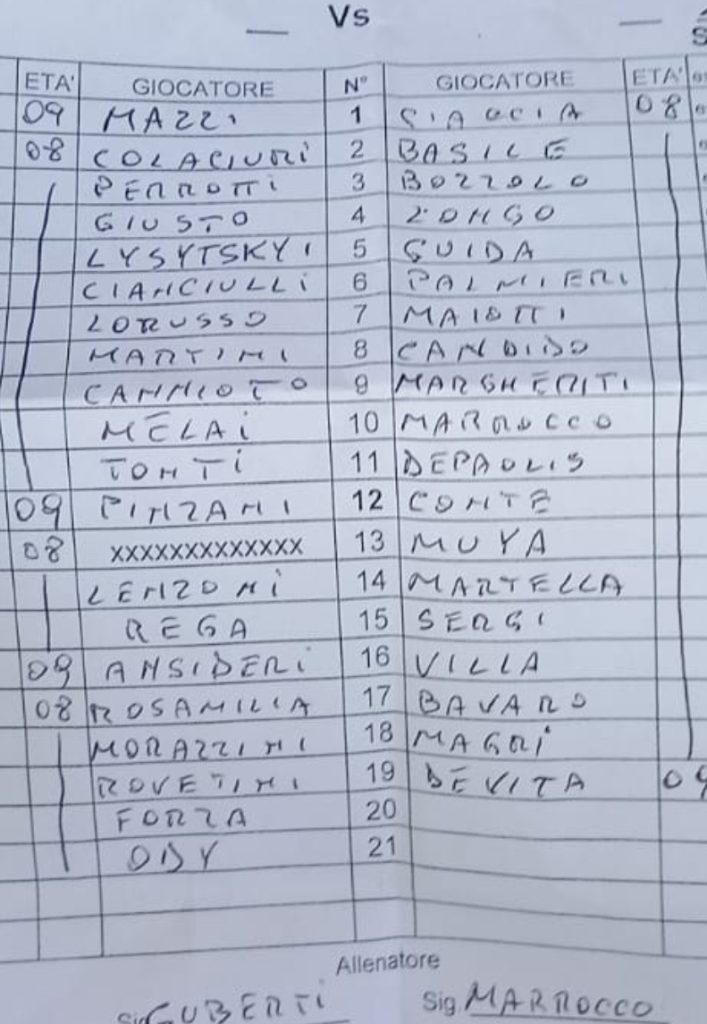 Vs
ETA' GIOCATORE N° GIOCATORE ETA'
09 MAZZI 1 08
08 COLACIURI 2 BASILE
PERROTTI 3 BOZZOLO
GIUSTO 4 LONGO
LYSYTSKYI 5 GUIDA
CIANCIULLI 6 PALMIERI
LORUSSO 7 MAIOTTI
MARTINI 8 CANDIDO
CANNIOTO 9 MARGHERITI
MELAI 10 MARROCCO
TONTI 11 DEPAOLIS
09 PINZANI 12 CONTE
08 XXXXXXXXXXXXX 13 MUYA
LENZONI 14 MARTELLA
REGA 15 SERGI
09 ANSIDERI 16 VILLA
08 ROSAMILIA 17 BAVARO
MORAZZINI 18 MAGRI
ROVETINI 19 DEVITA 09
FORZA 20
ODY 21
Allenatore
Sig GUBERTI Sig. MARROCCO